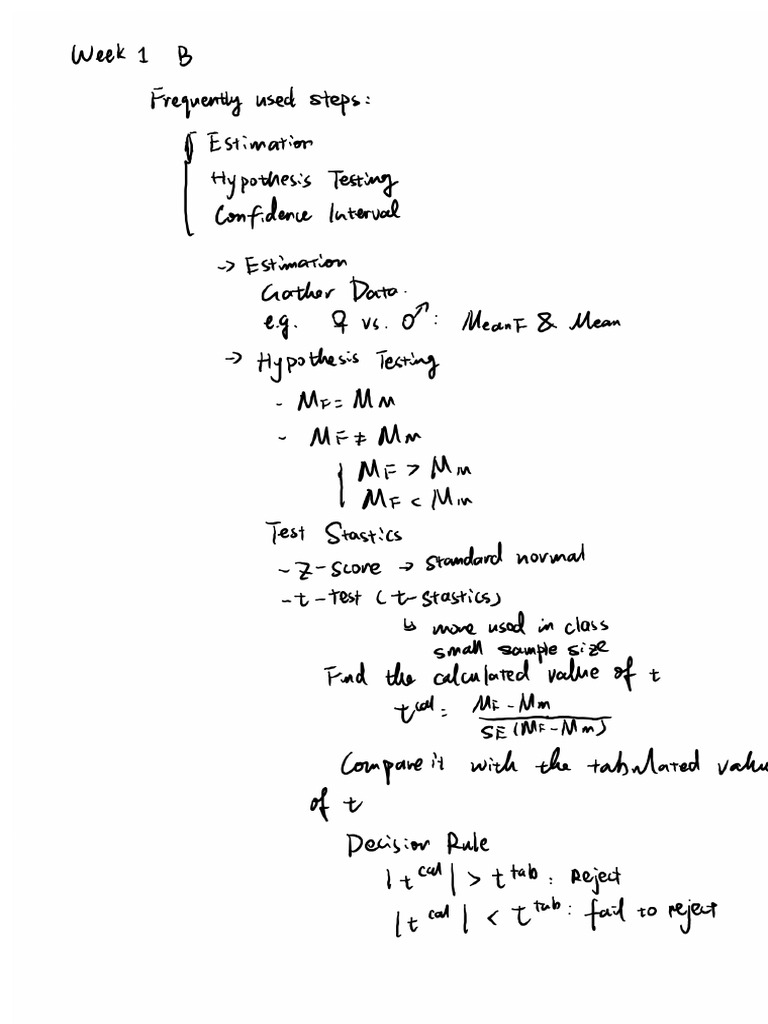 Week 1 B
Frequently used steps:
Estimation
Hypothesis Testing
Confidence Interval
→ Estimation
Gather Data.
e.g. ♀ vs. ♂: MeanF & Mean
→ Hypothesis Testing
- MF = MM
- MF ≠ MM
MF > Mm
MF < Mm
Test Stastics
- Z-score → standard normal
- t-test (t-stastics)
↳ more used in class
small sample size
Find the calculated value of t
t^cal = (MF - Mm) / SE(MF - Mm)
Compare it with the tabulated value
of t
Decision Rule
|t^cal| > t^tab: Reject
|t^cal| < t^tab: fail to reject